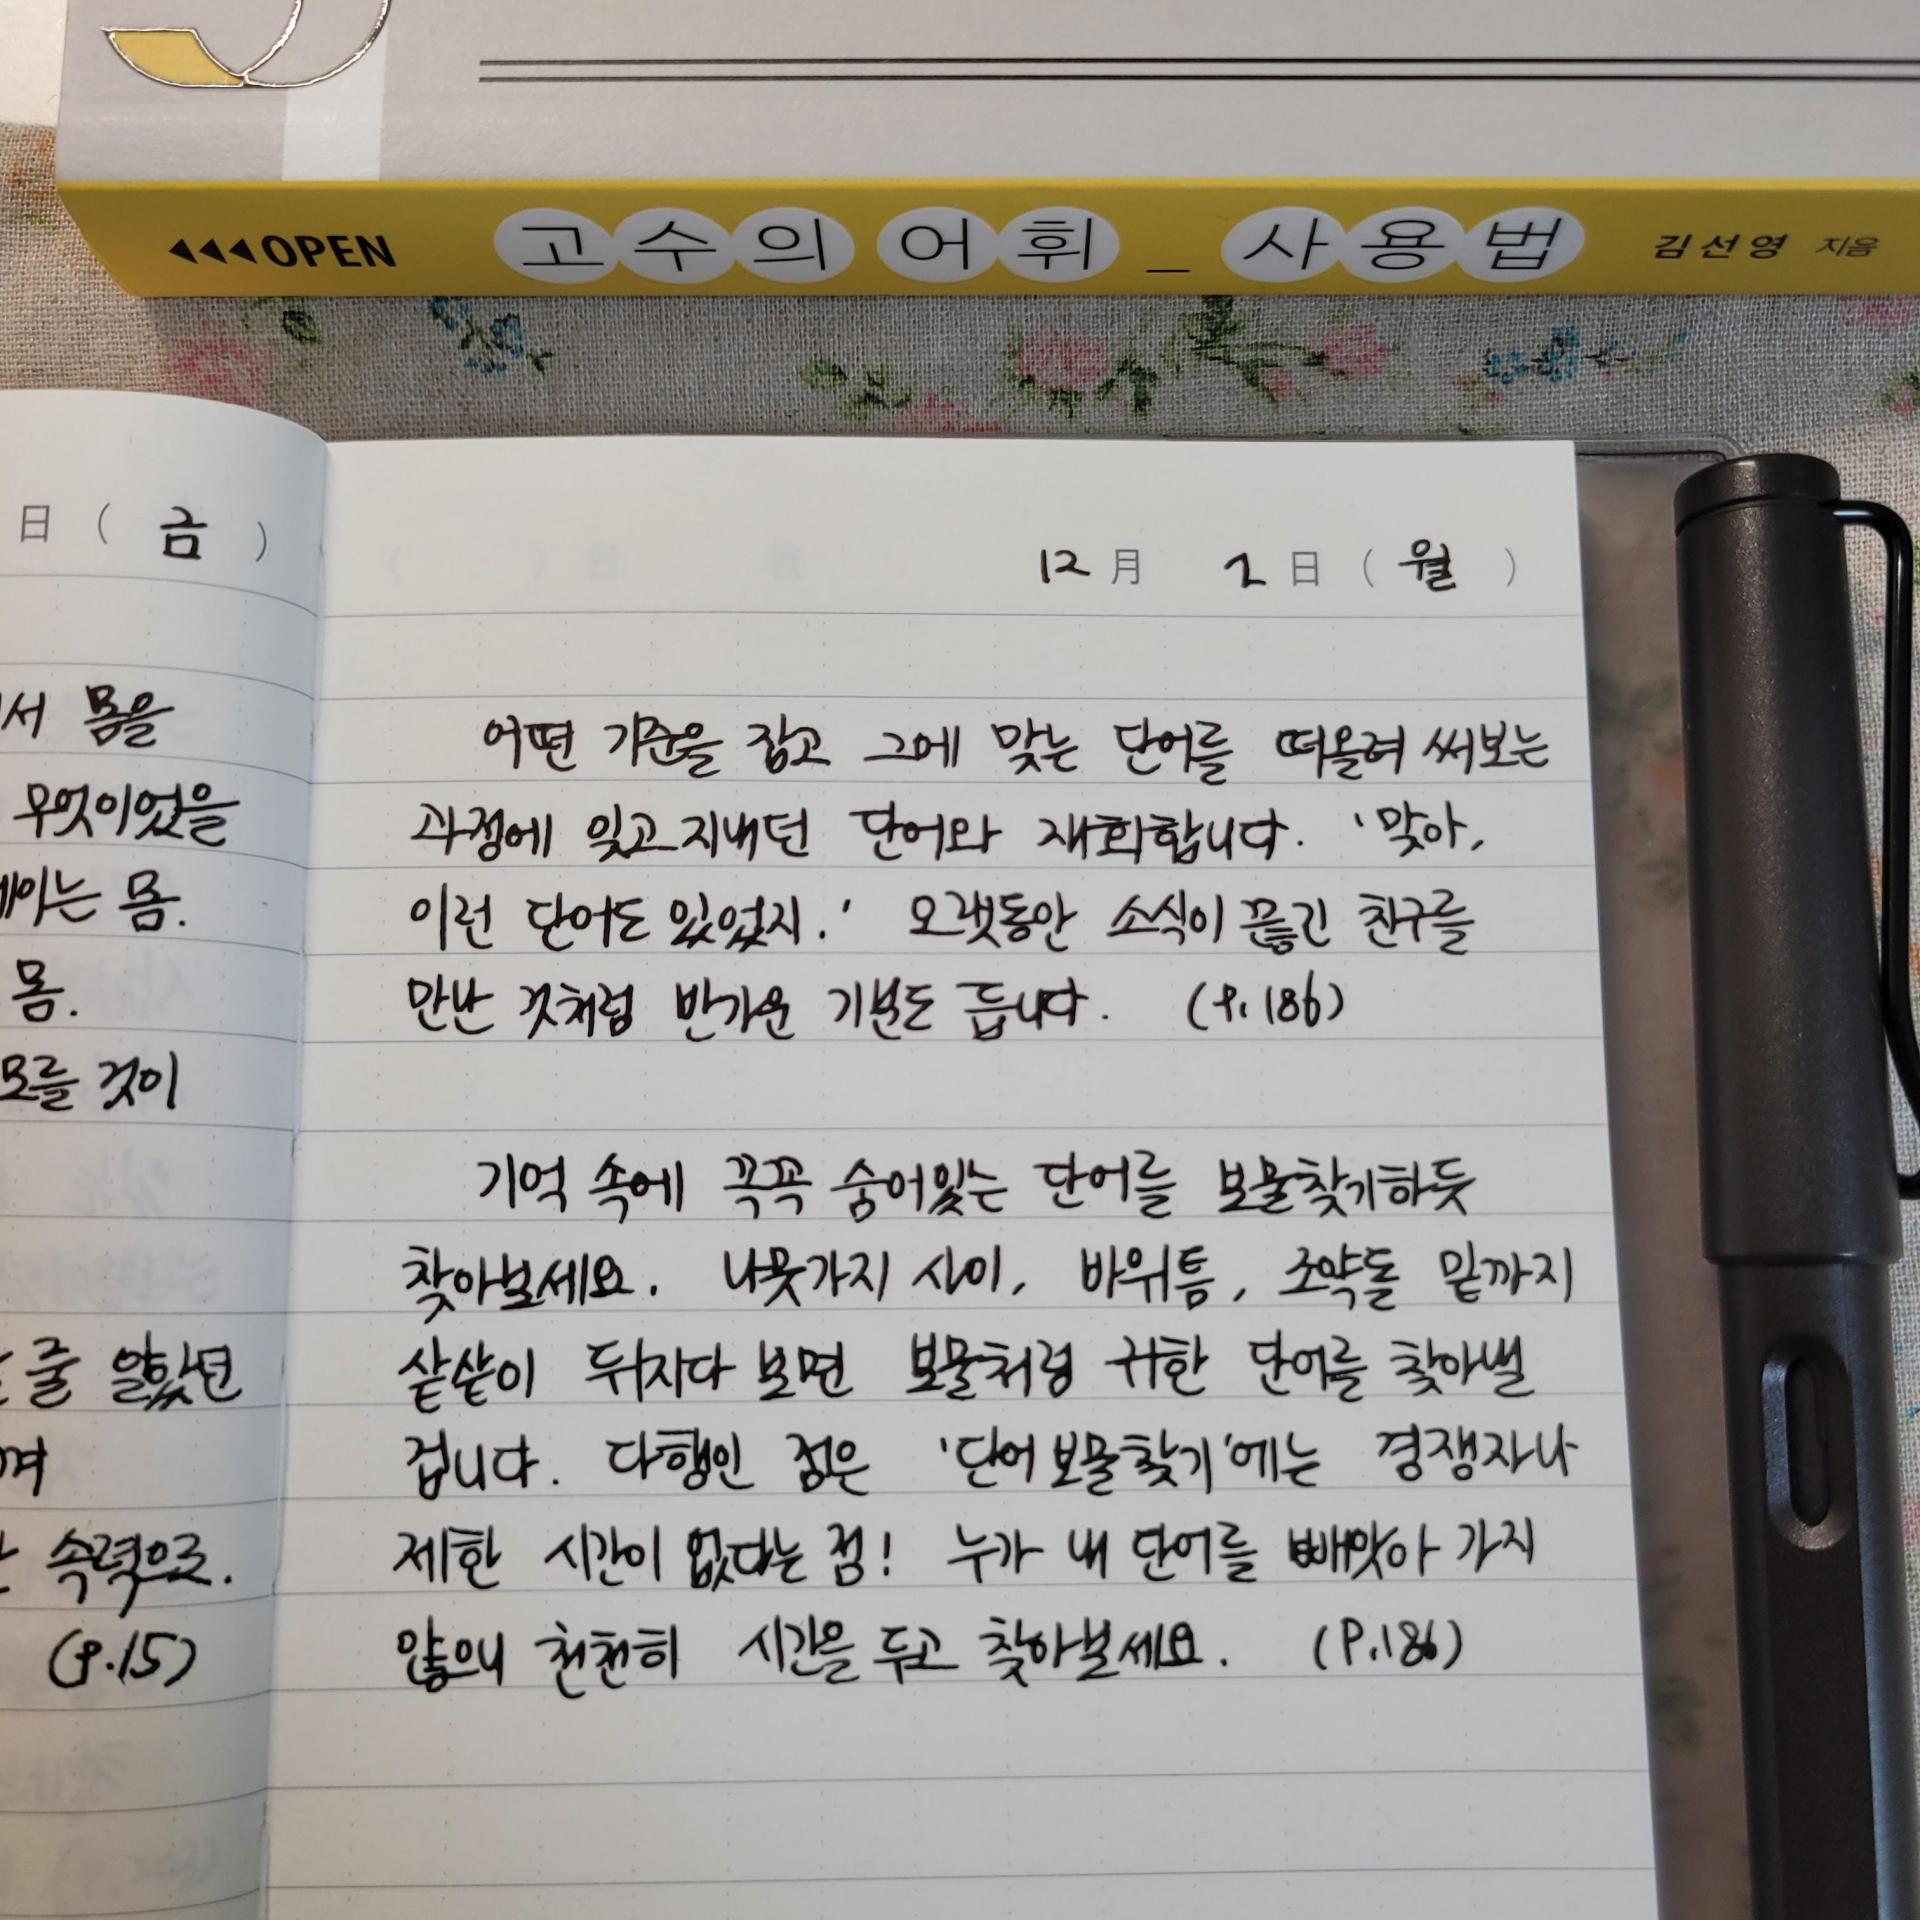 ◀◀◀OPEN 고수의 어휘_사용법 김선영 지음
日 ( 금 )
서 몸을
무엇이었을
는 몸.
몸.
모를 것이
줄 알았던
속력으로.
(P.15)
12 月 1 日 ( 월 )
어떤 기준을 잡고 그에 맞는 단어를 떠올려 써보는
과정에 잊고 지내던 단어와 재회합니다. '맞아,
이런 단어도 있었지.' 오랫동안 소식이 끊긴 친구를
만난 것처럼 반가운 기분도 듭니다. (P.186)
기억 속에 꼭꼭 숨어있는 단어를 보물찾기하듯
찾아보세요. 나뭇가지 사이, 바위틈, 조약돌 밑까지
샅샅이 뒤지다 보면 보물처럼 귀한 단어를 찾아낼
겁니다. 다행인 점은 '단어 보물찾기'에는 경쟁자나
제한 시간이 없다는 점! 누가 내 단어를 빼앗아 가지
않으니 천천히 시간을 두고 찾아보세요. (P.186)